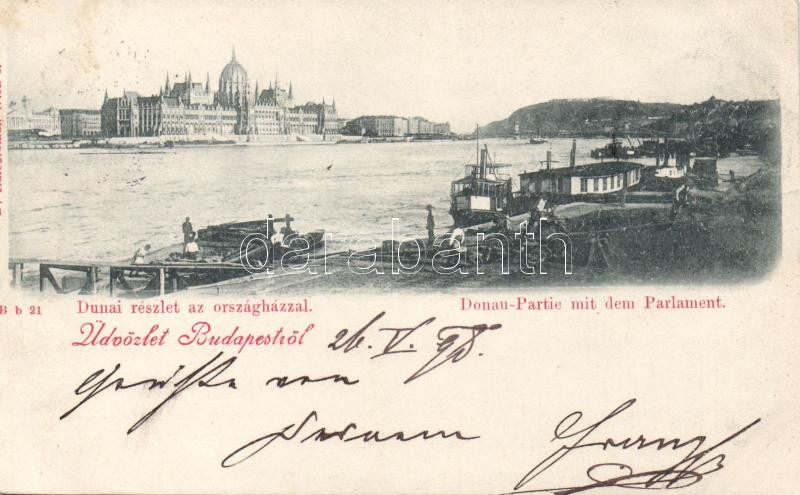 darabanth
B b 21
Dunai részlet az országházzal.
Donau-Partie mit dem Parlament.
Üdvözlet Budapestről
26. V. 98.
Grüsse von
Franz